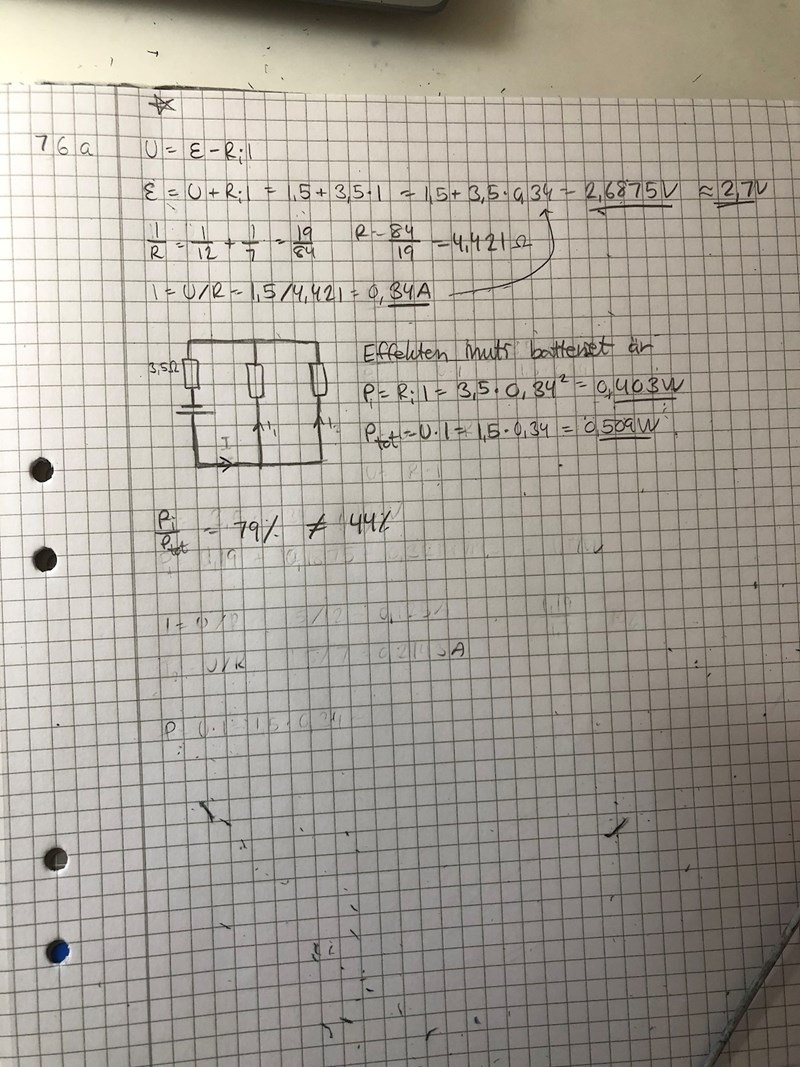 76a
U = ε - Ri I
ε = U + Ri I = 1,5 + 3,5·I = 1,5 + 3,5·0,34 = 2,6875V ≈ 2,7V
1/R = 1/12 + 1/7 = 19/84 R = 84/19 = 4,421Ω
I = U/R = 1,5/4,421 = 0,34A
3,5Ω
I
I₁
Effekten inuti batteriet är
Pi = Ri I = 3,5·0,34² = 0,403W
Ptot = U·I = 1,5·0,34 = 0,509W
Pi/Ptot = 79% ≠ 44%
U/R
A
P U·I 1,5·0,34